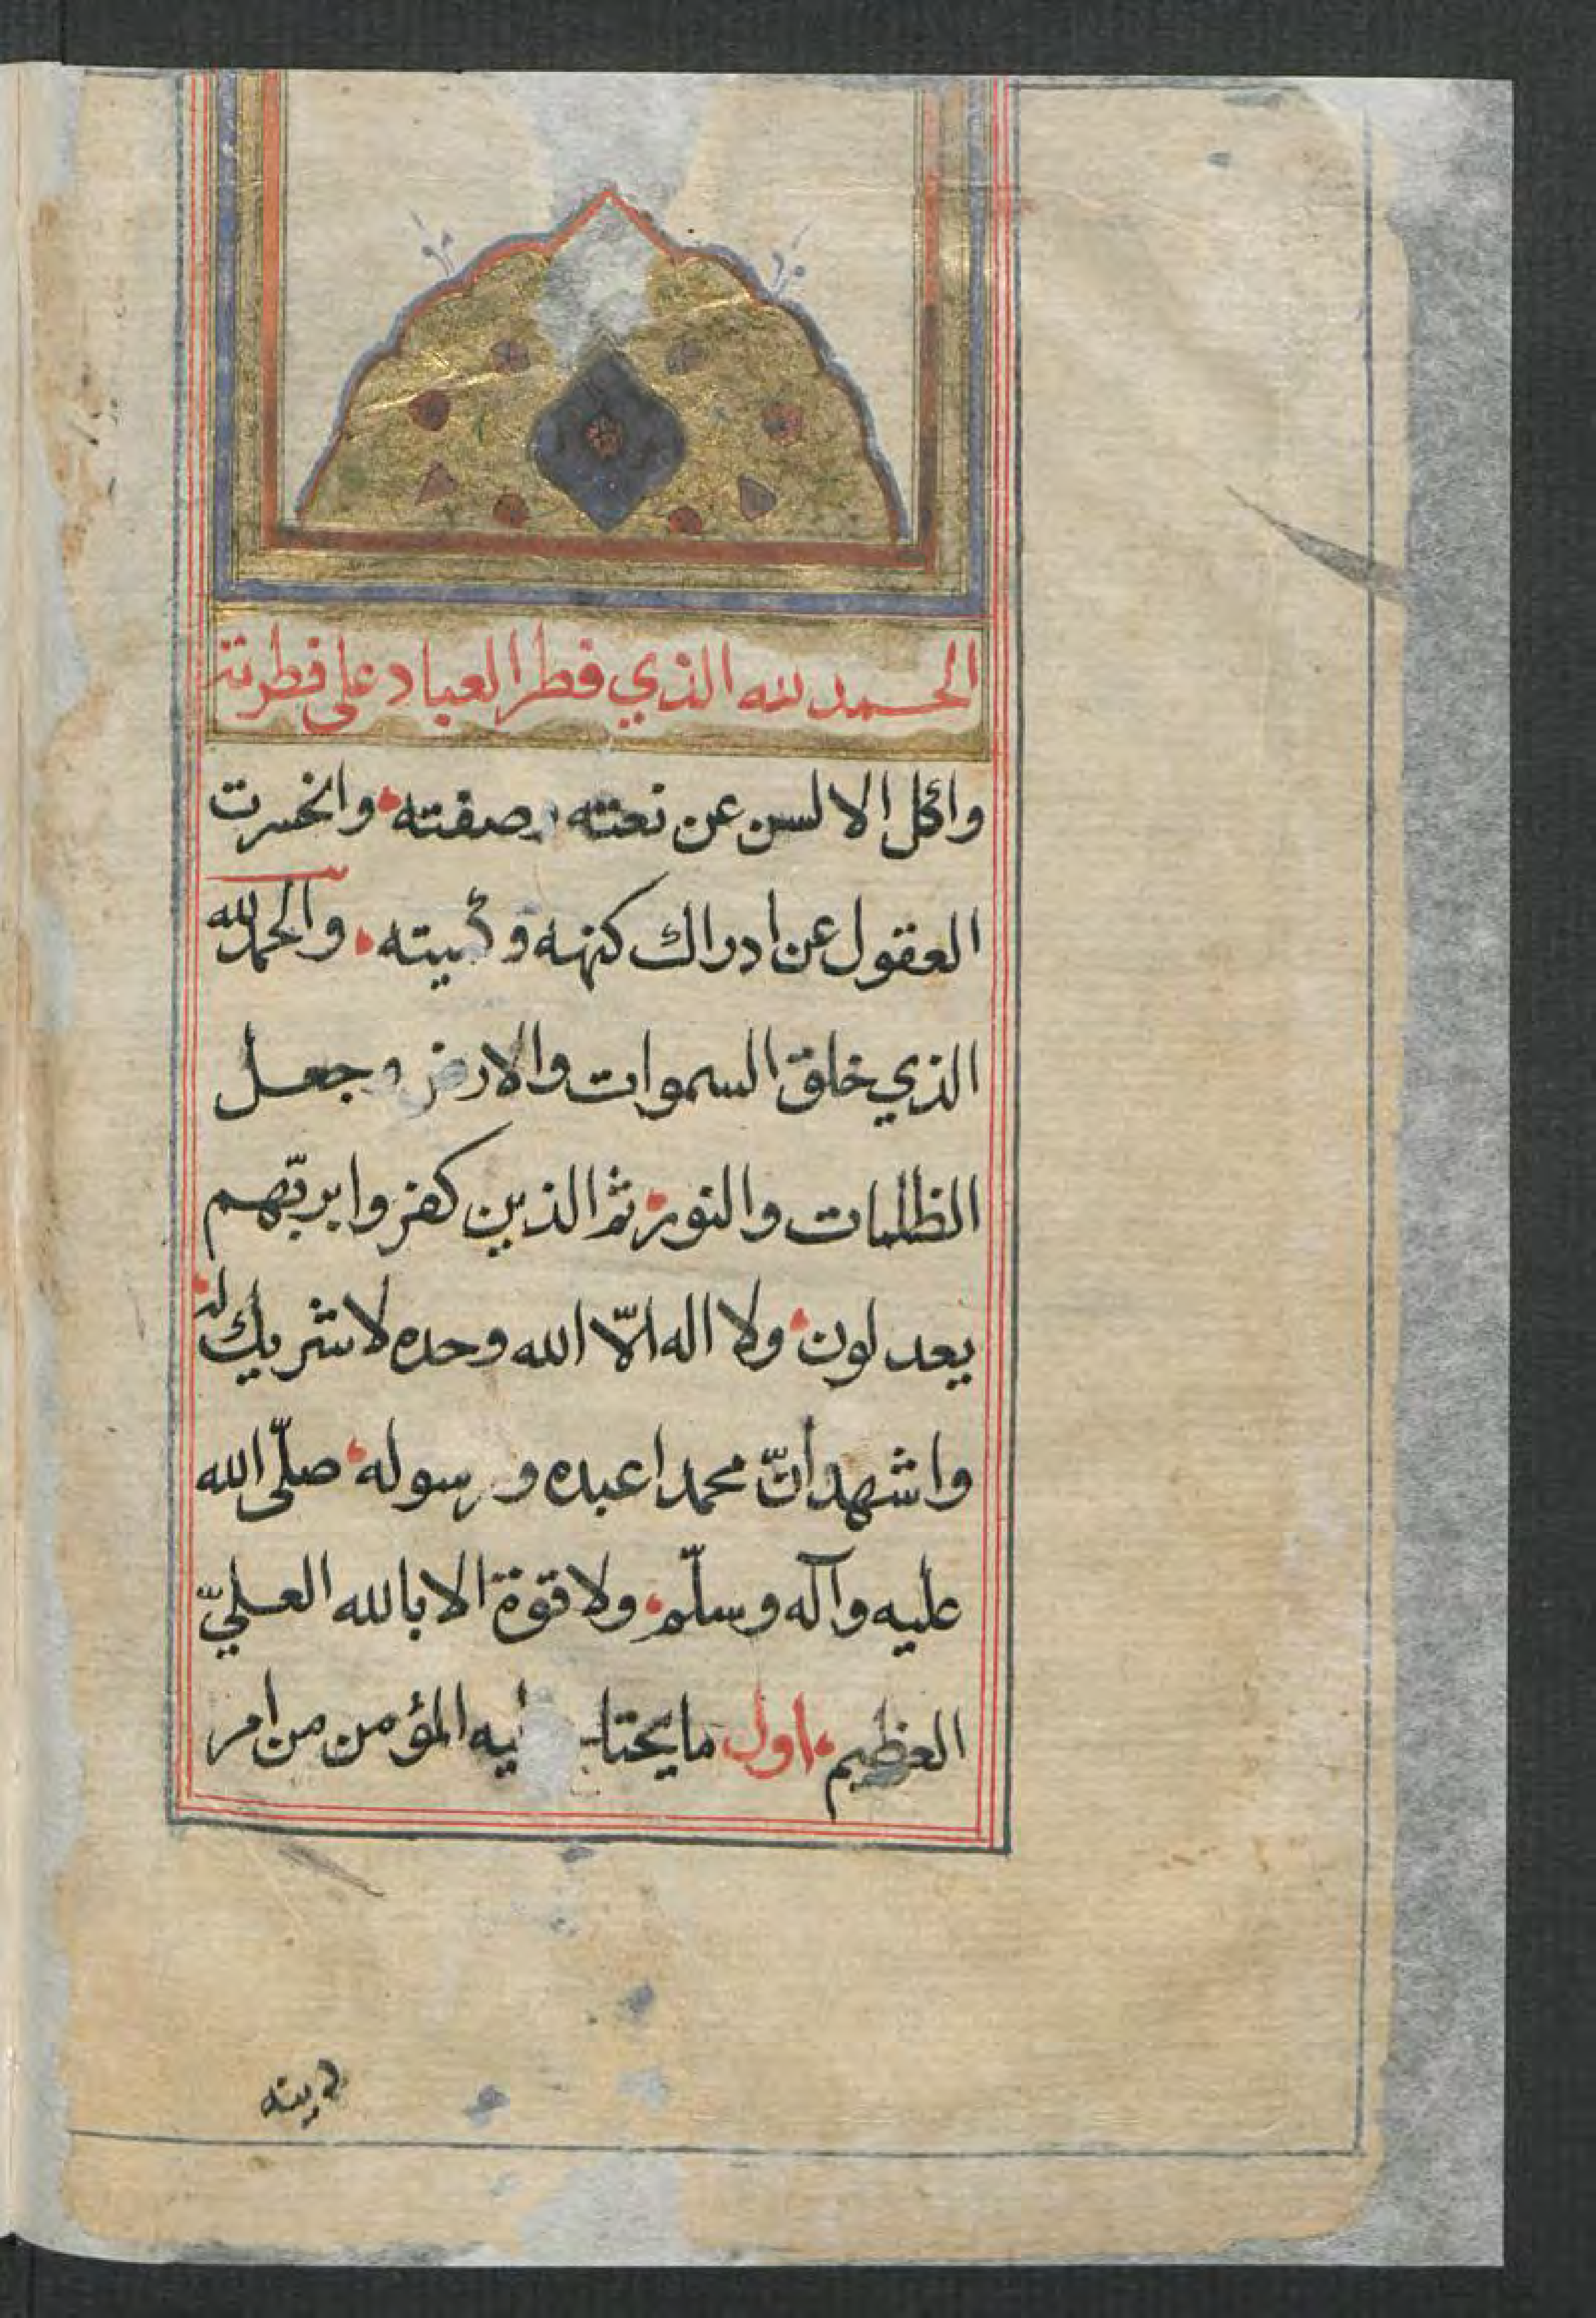 الحمد لله الذي فطر العباد على فطرته
واكل الالسن عن نعته صفته وانحسرت
العقول عن ادراك كنهه و والحمد لله
الذي خلق السموات والارض وجعل
الظلمات والنور ثم الذين كفروا بربّهم
يعدلون ولا اله الّا الله وحده لا شريك له
واشهد انّ محمدا عبده ورسوله صلّى الله
عليه وآله وسلّم ولا قوّة الا بالله العليّ
العظيم اول ما المؤمن من امر
دينه